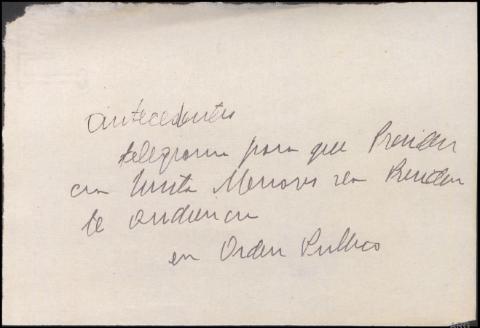 antecedentes
telegrama para que Presiden
con Visita Menores sea
te audiencia
en Orden Publico